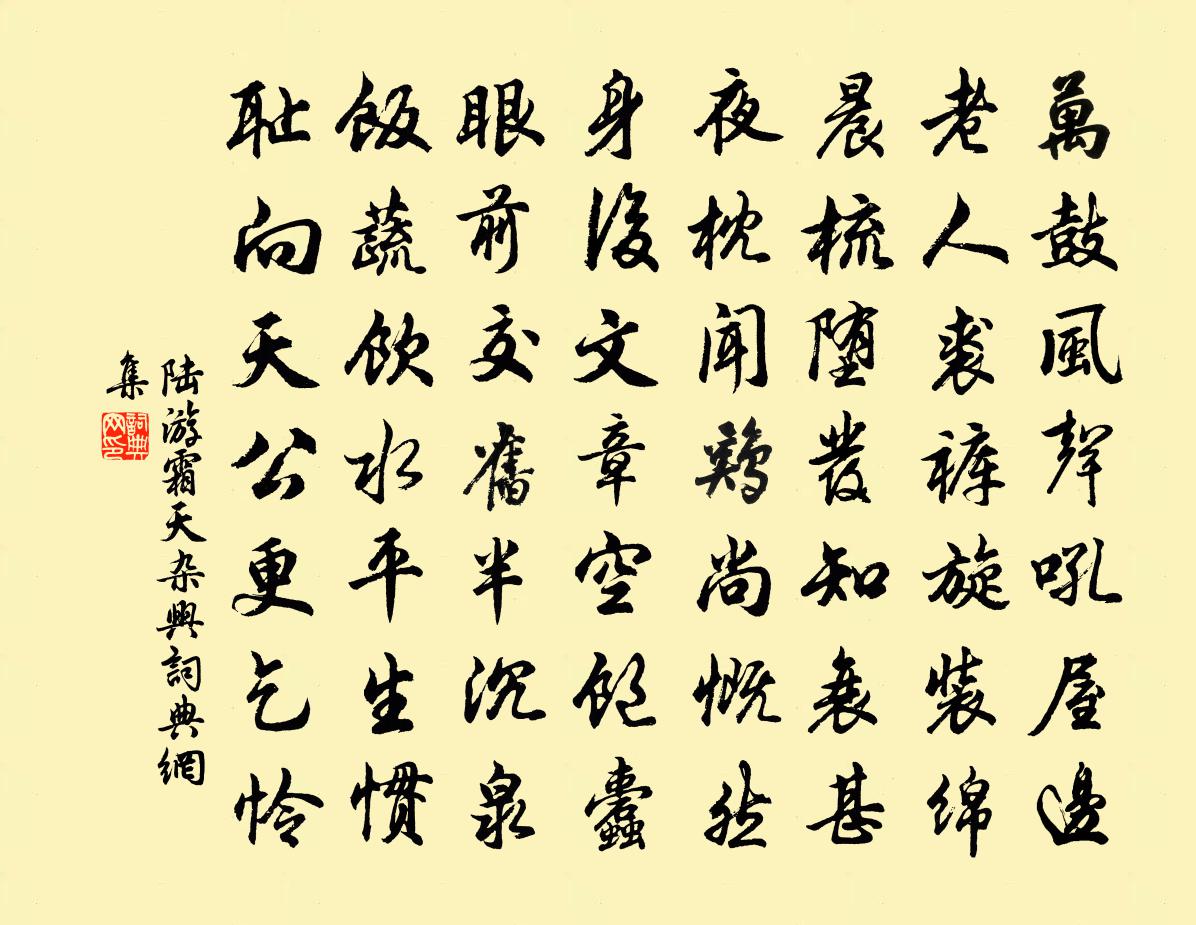 萬鼓風聲吼屋邊
老人裘褲旋裝綿
晨梳堕發知衰甚
夜枕聞鷄尚慨然
身後文章空飽蠹
眼前交舊半沉泉
飯蔬飲水平生慣
耻向天公更乞怜
陆游霜天杂興詞典網
集
詞典
网印